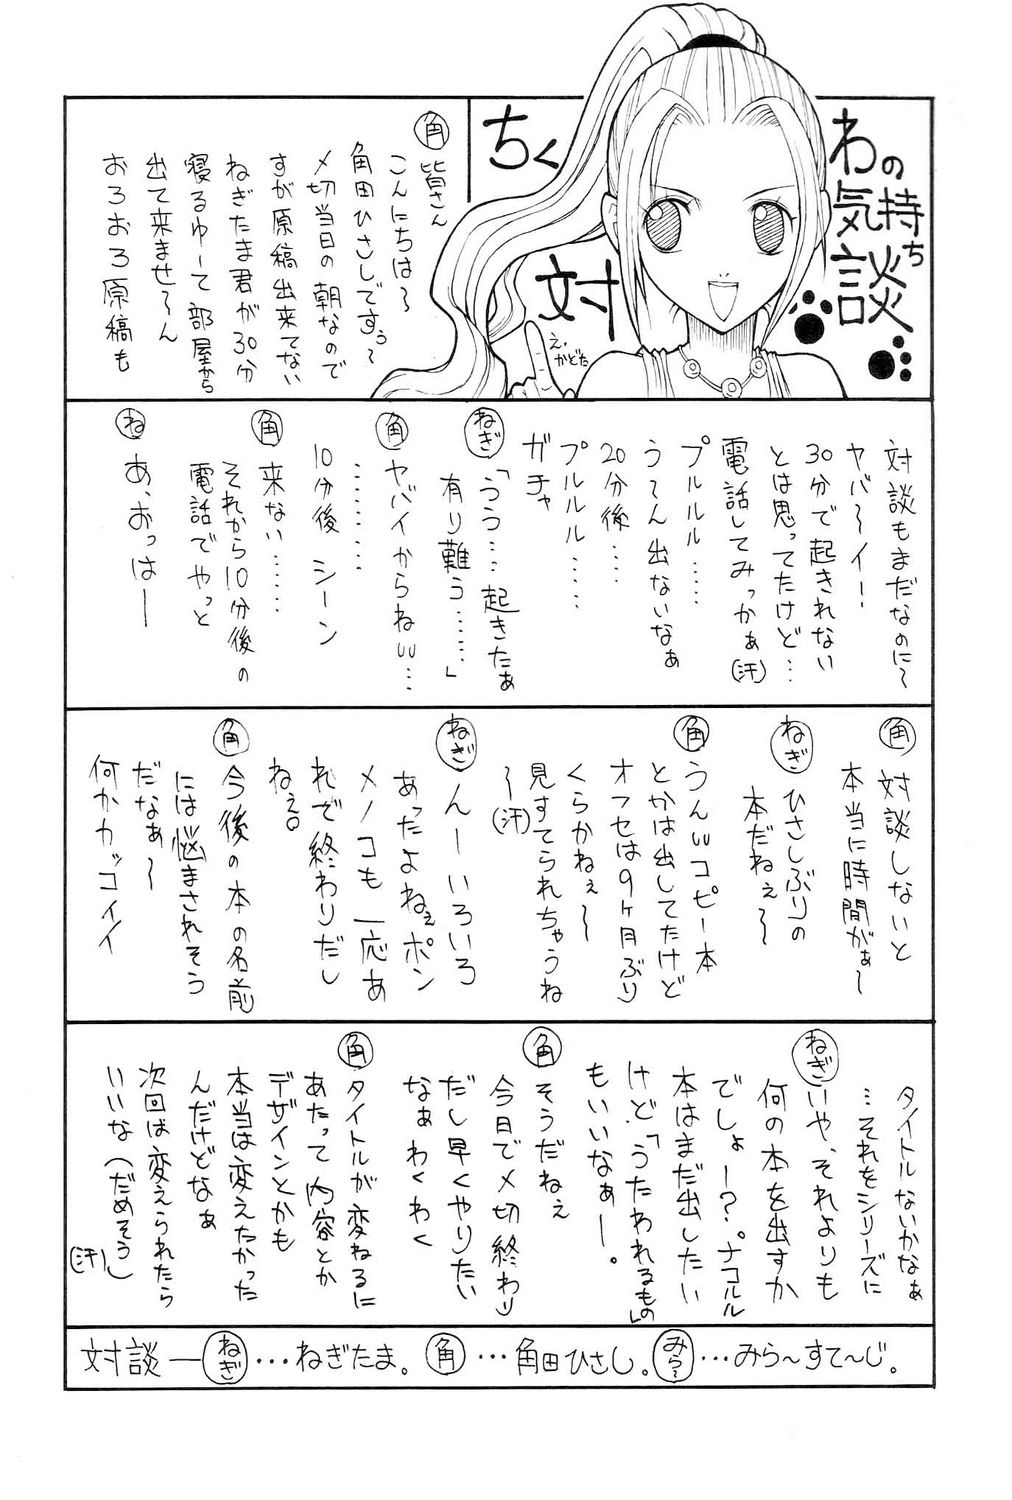 ちくわの気持ち
対談
え,
かどた
角 皆さん
こんにちは～
角田ひさしですぅ～
〆切当日の朝なので
すが原稿出来てない
ねぎたま君が30分
寝るゆーて部屋から
出て来ませ～ん
おろおろ原稿も
対談もまだなのに～
ヤバ～イ!
30分で起きれない
とは思ってたけど…
電話してみっかぁ(汗)
プルルル……
う～ん出ないなぁ
20分後…
プルルル……
ガチャ
ねぎ「うう…起きたぁ
有り難う……」
角 ヤバイからねw…
………
10分後 シーン
角 来ない……
それから10分後の
電話でやっと
ね あ、おっはー
角 対談しないと
本当に時間がぁ～
ねぎ ひさしぶりの
本だねぇ～
角 うんwコピー本
とかは出してたけど
オフセは9ヶ月ぶり
くらかねぇ～
見すてられちゃうね
～(汗)
ねぎ んーいろいろ
あったよねぇポン
メノコも一応あ
れで終わりだし
ねぇ。
角 今後の本の名前
には悩まされそう
だなぁ～
何かカッコイイ
タイトルないかなぁ
…それをシリーズに
ねぎ いや、それよりも
何の本を出すか
でしょー?ナコルル
本はまだ出したい
けど「うたわれるもの」
もいいなぁー。
角 そうだねぇ
今日で〆切終わり
だし早くやりたい
なぁ わくわく
角 タイトルが変わるに
あたって内容とか
デザインとかも
本当は変えたかった
んだけどなぁ
次回は変えられたら
いいな(だめそう)
(汗)
対談―ねぎ…ねぎたま。角…角田ひさし。みら～…みら～すて～じ。